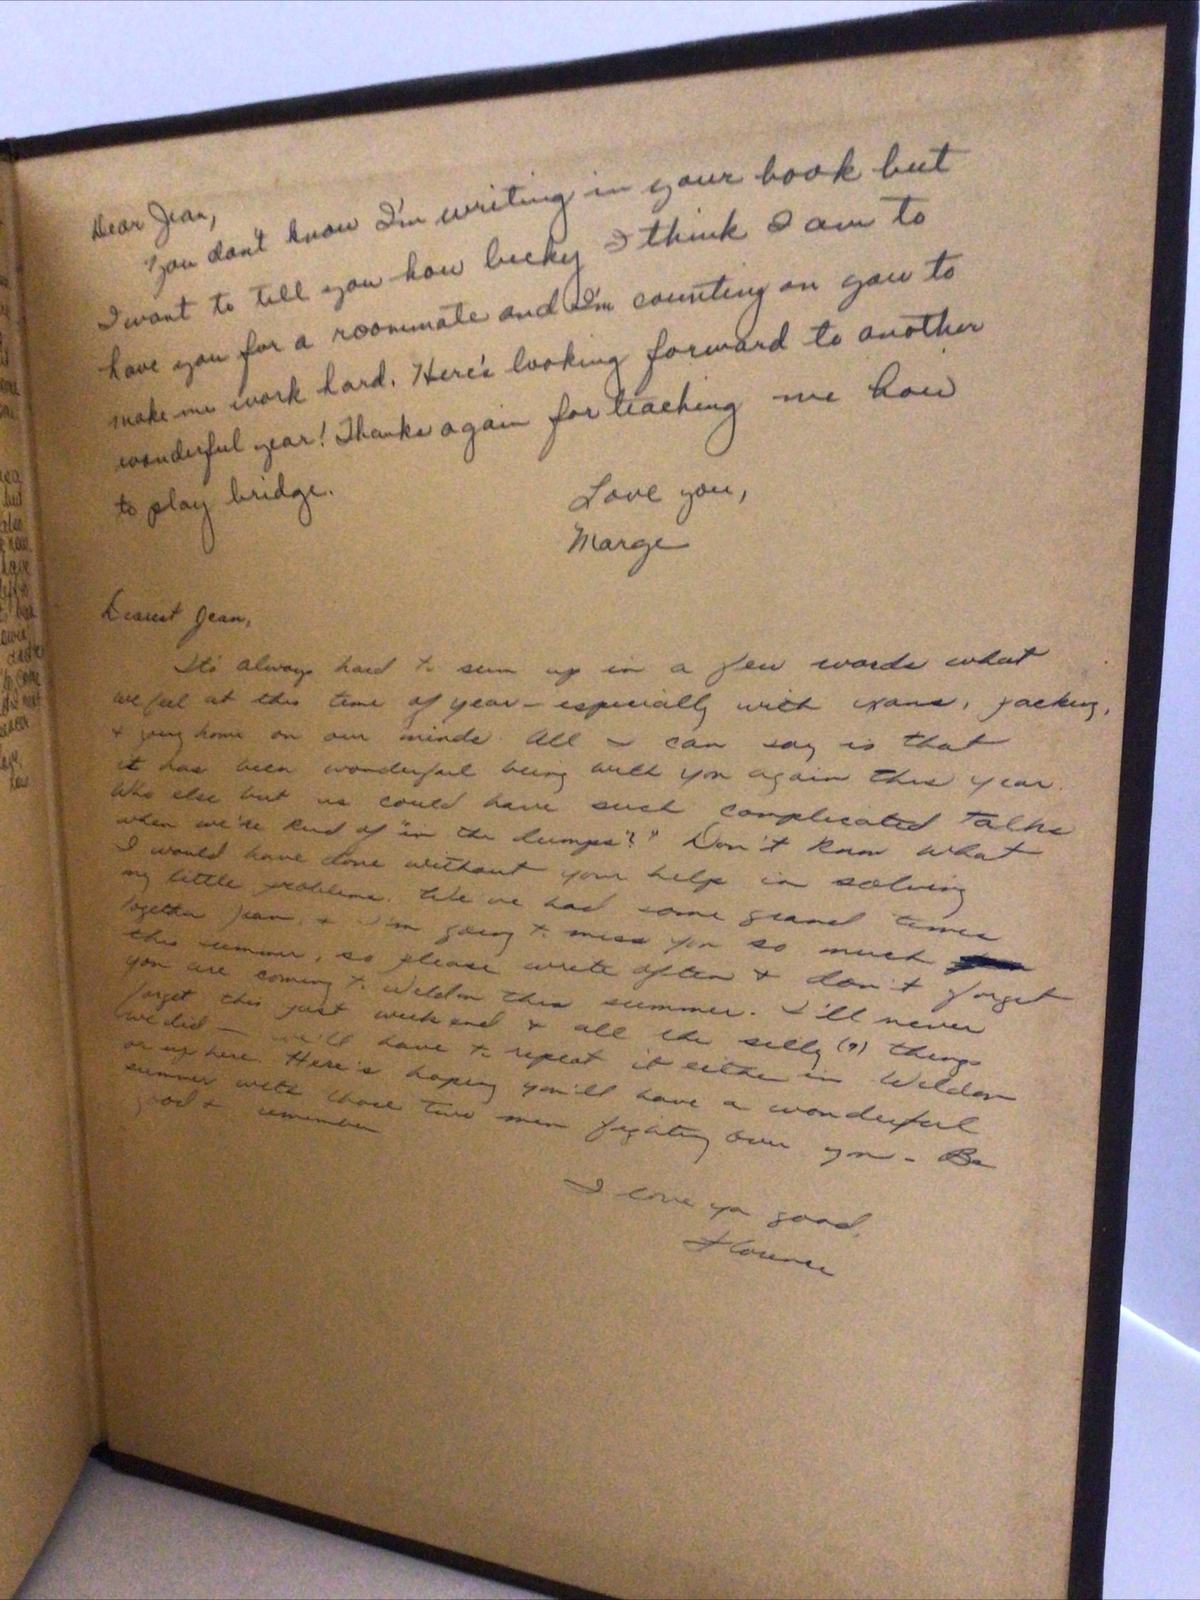 Dear Jean,
You don't know I'm writing in your book but
I want to tell you how lucky I think I am to
have you for a roommate and I'm counting on you to
make me work hard. Here's looking forward to another
wonderful year! Thanks again for teaching me how
to play bridge.
Love you,
Marge
Dearest Jean,
It's always hard to sum up in a few words what
we feel at this time of year - especially with exams, packing,
& going home on our minds. All I can say is that
it has been wonderful being with you again this year.
Who else but us could have such complicated talks
when we're kind of "in the dumps"? Don't know what
I would have done without your help in solving
my little problems. We've had some grand times
together Jean, & I'm going to miss you so much
this summer, so please write often & don't forget
you are coming to Weldon this summer. I'll never
forget this past weekend & all the silly (?) things
we did - we'll have to repeat it either in Weldon
or up here. Here's hoping you'll have a wonderful
summer with those two men fighting over you - Be
good & remember
I love ya good,
Florence